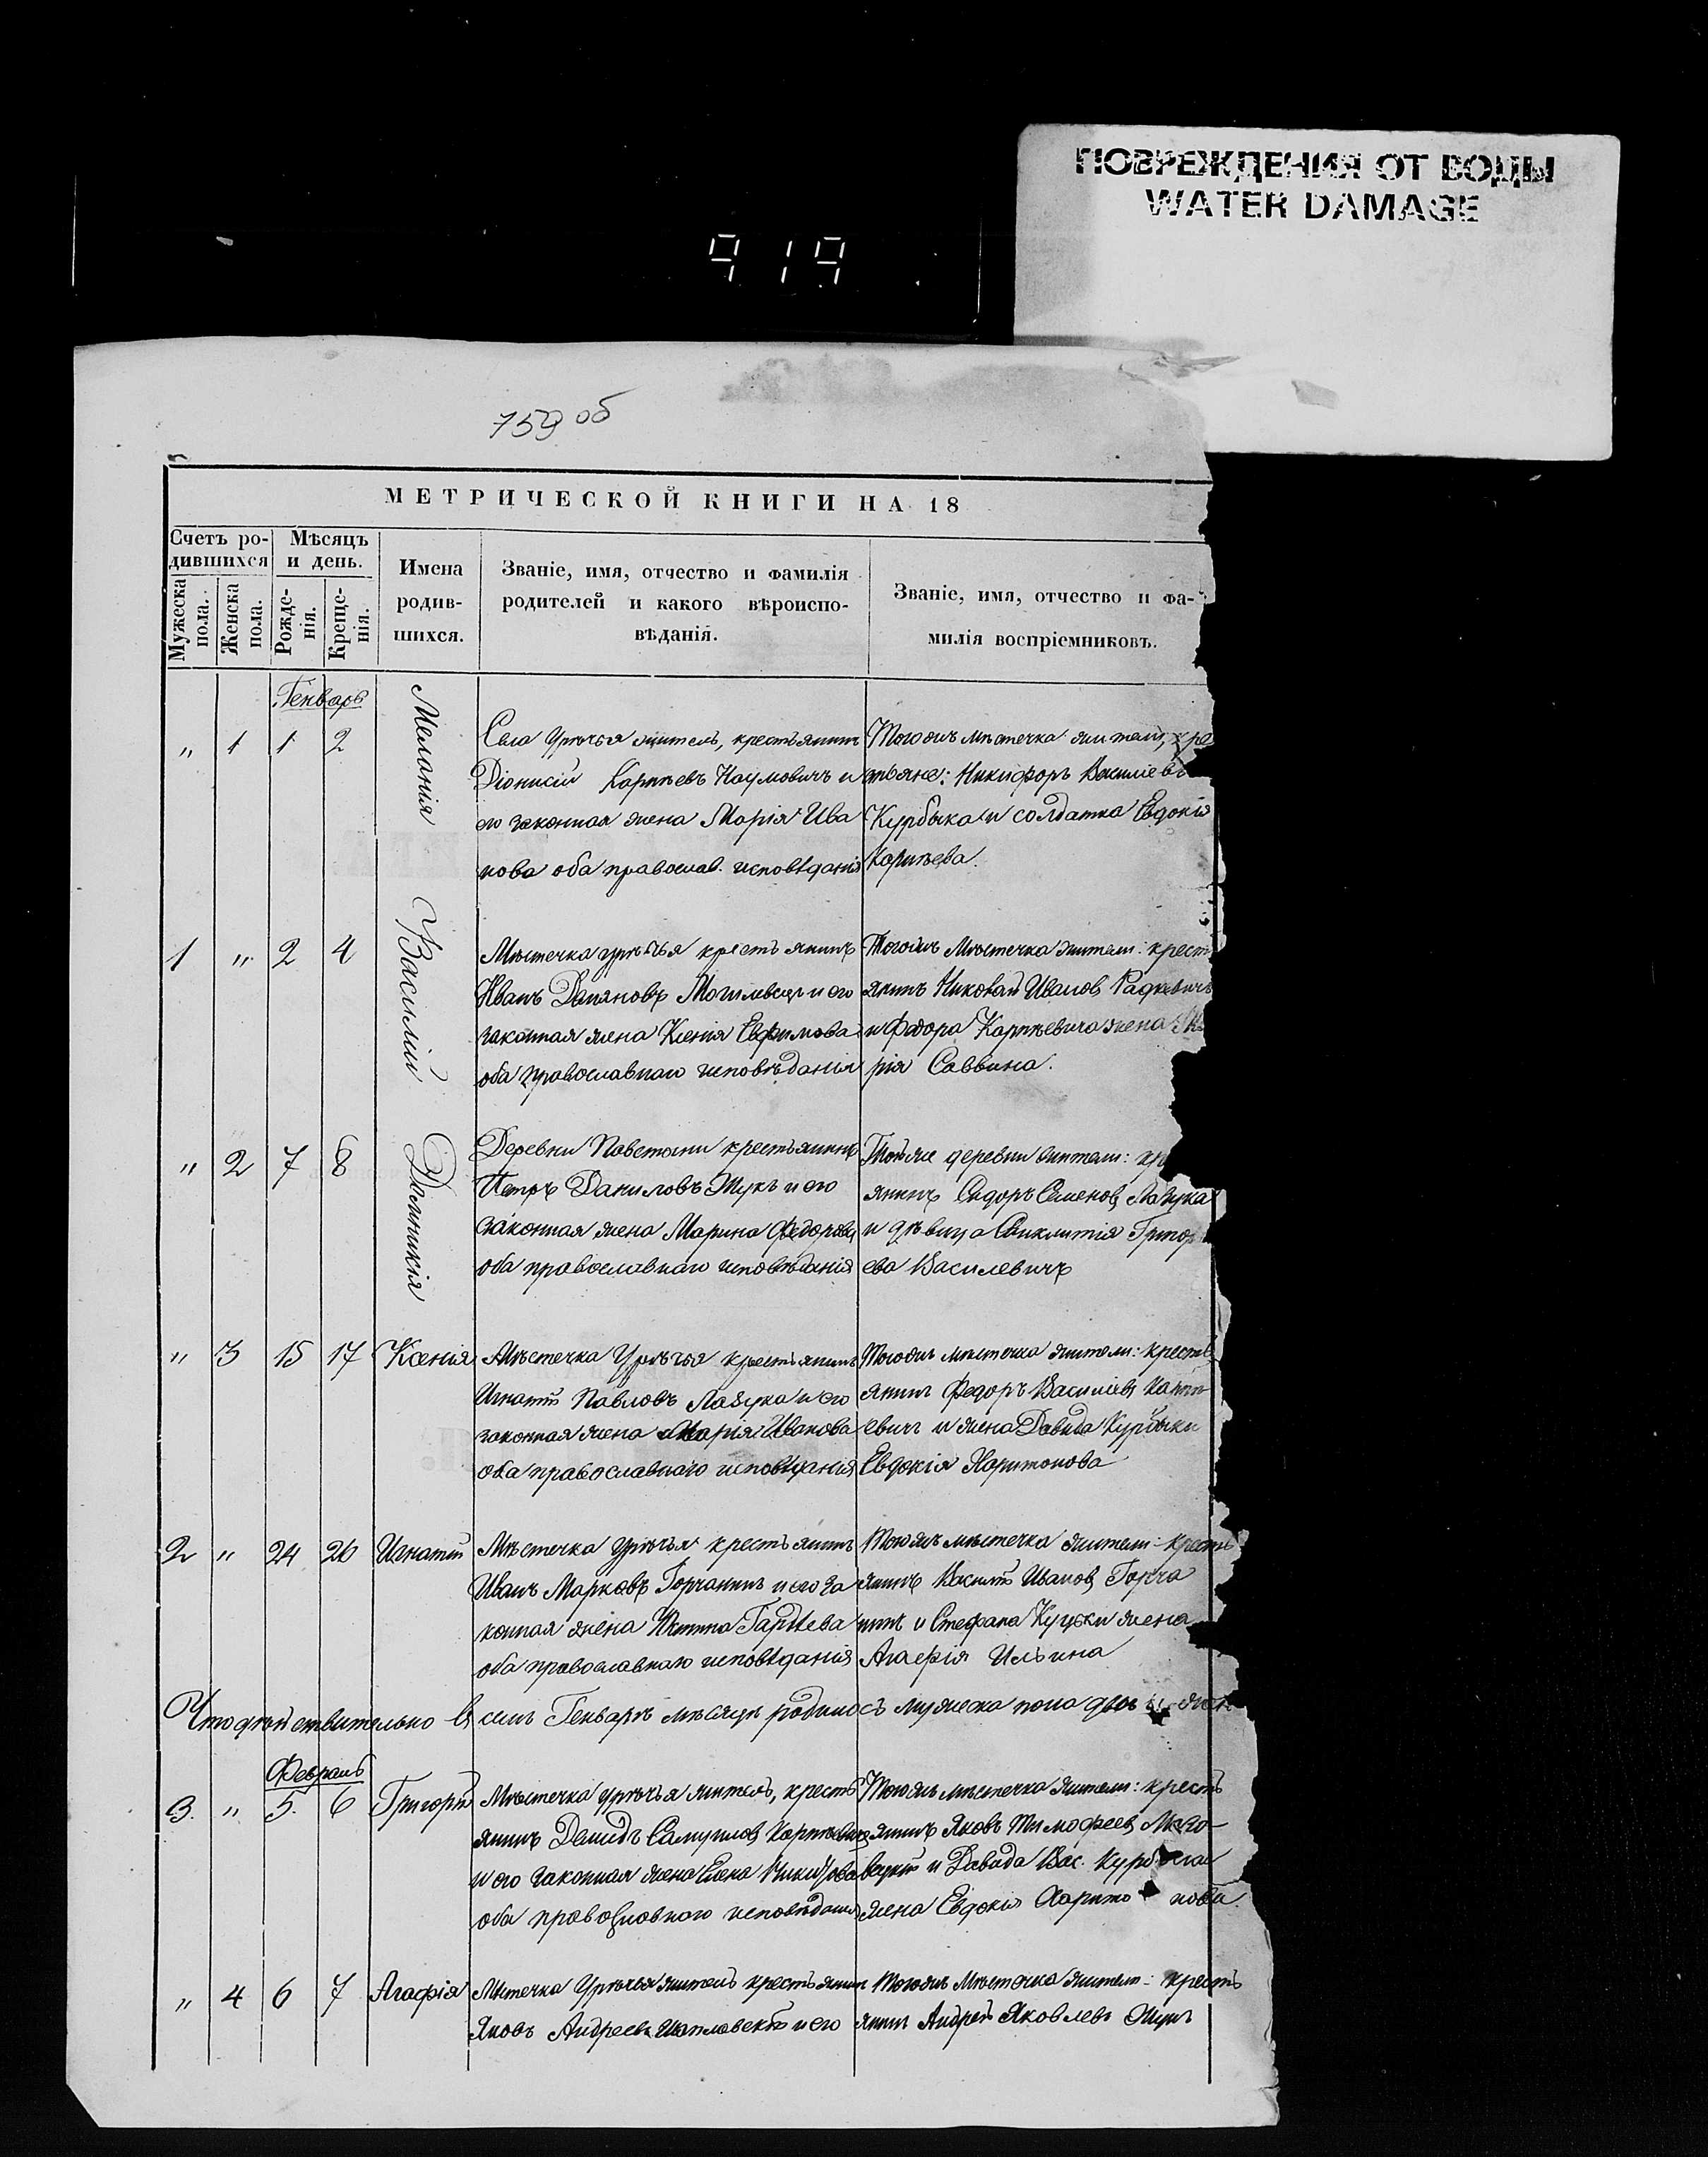 ПОВРЕЖДЕНИЯ ОТ ВОДЫ
WATER DAMAGE
919
759 об
МЕТРИЧЕСКОЙ КНИГИ НА 18
Счетъ ро-
дившихся
Мужеска пола.
Женска пола.
Мѣсяцъ
и день.
Рожде-
нія.
Креще-
нія.
Имена
родив-
шихся.
Званіе, имя, отчество и фамилія
родителей и какого вѣроиспо-
вѣданія.
Званіе, имя, отчество и фа-
милія воспріемниковъ.
Генварь
„ 1 1 2
Меланія
Села Урѣчья житель, крестьянинъ
Діонисій Карпѣевъ Наумовичъ и
его законная жена Марія Ива
нова оба православ. исповѣданія
Тогожъ мѣстечка жители, кре
стьяне: Никифоръ Василіевъ
Курбыка и солдатка Евдокія
Карпѣева.
1 „ 2 4
Василій
Мѣстечка Урѣчья крестьянинъ
Иванъ Даміановъ и его
законная жена Ксенія Евфимова
оба православнаго исповѣданія
Тогожъ Мѣстечка жители: кресть
янинъ Николай Ивановъ Радкевичъ
и Федора Карпѣевича жена
рія Саввина.
„ 2 7 8
Домникія
Деревни Повстыни крестьянинъ
Петръ Даниловъ Жукъ и его
законная жена Марина Федорова
оба православнаго исповѣданія
Той же деревни жители: кр
янинъ Сидоръ Семеновъ Лазука
и дѣвица Синклитія Григор
ева Василевичъ
„ 3 15 17 Ксенія
Мѣстечка Урѣчья крестьянинъ
Игнатій Павловъ Лазука и его
законная жена Марія Иванова
оба православнаго исповѣданія
Тогожъ мѣстечка жители: кресть
янинъ Федоръ Василіевъ Карпѣ
евичъ и жена Давида Курбыки
Евдокія Харитонова
2 „ 24 26 Игнатій
Мѣстечка Урѣчья крестьянинъ
Иванъ Марковъ Горчанинъ и его за
конная жена Гордѣева
оба православнаго исповѣданія
Тогожъ мѣстечка жители: кресть
янинъ Василій Ивановъ Горча
нинъ и Стефана Куцки жена
Агафія Ильина
Что дѣйствительно въ семъ Генварѣ мѣсяцѣ родилось мужеска пола двое и
Февраль
3. „ 5. 6 Григорій
Мѣстечка Урѣчья житель, кресть
янинъ Демидъ Самуиловъ Карпѣевичъ
и его законная жена Елена
оба православнаго исповѣданія
Тогожъ мѣстечка жители: кресть
янинъ Яковъ Тимофеевъ
и Давида Вас. Курбыки
жена Евдокія Харито нова.
„ 4 6 7 Агафія
Мѣстечка Урѣчья житель крестьянинъ
Яковъ Андреевъ и его
Тогожъ Мѣстечка жители: кресть
янинъ Андрей Яковлевъ